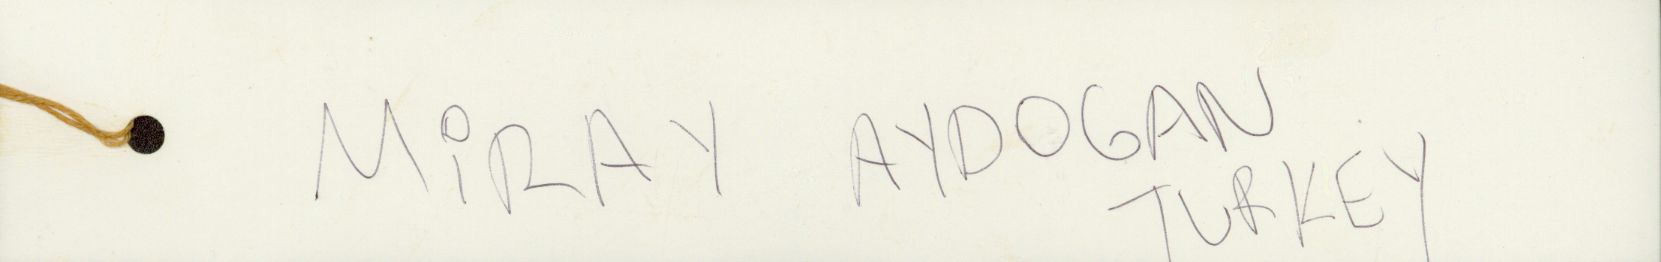 MiRAY AYDOGAN
TURKEY